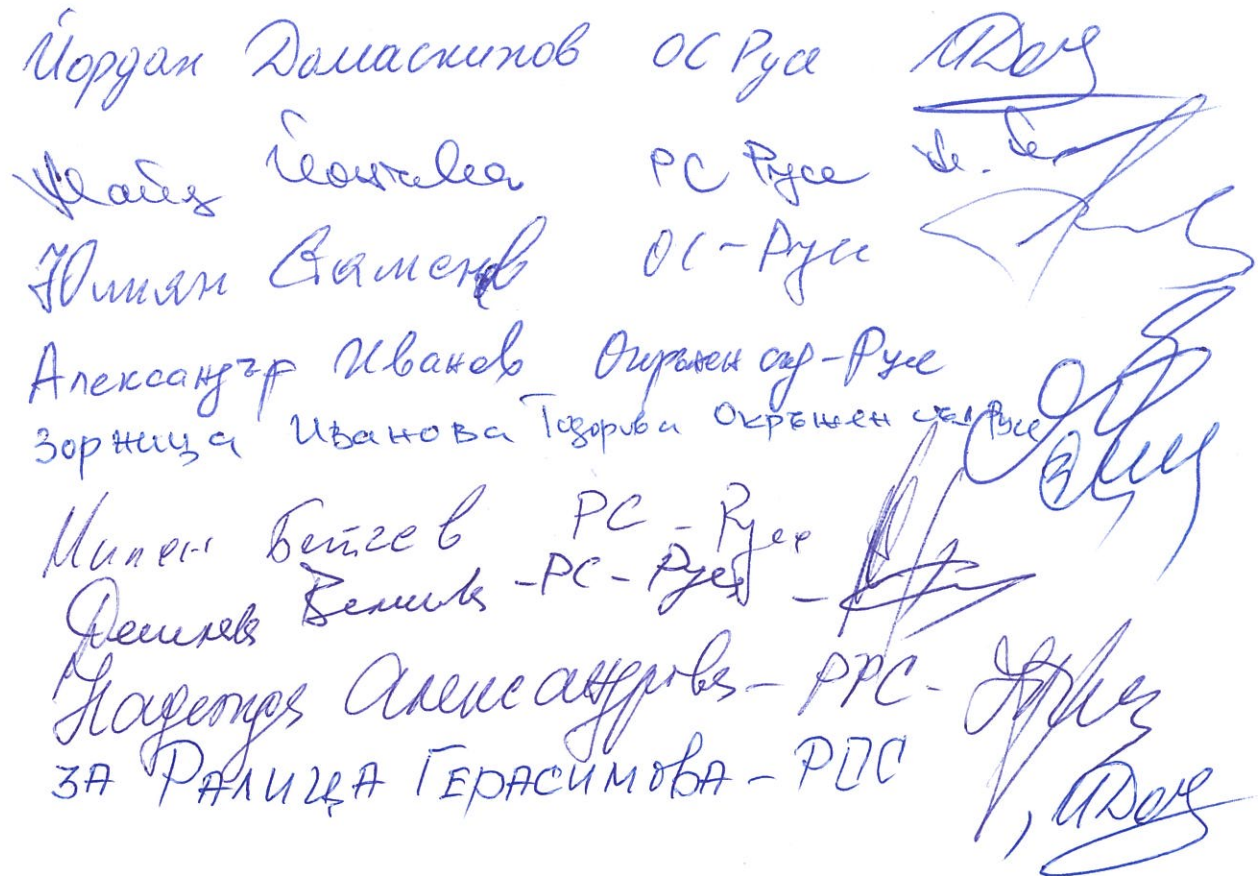 Йордан Дамаскинов ОС Русе
Майя Йончева РС Русе
Юлиян Стаменов ОС-Русе
Александър Иванов Окръжен съд-Русе
Зорница Иванова Тодорова Окръжен съд Русе
Милен Бойчев РС - Русе
Деница Велики - РС - Русе -
Надежда Александрова - РРС -
ЗА РАЛИЦА ГЕРАСИМОВА - РПС